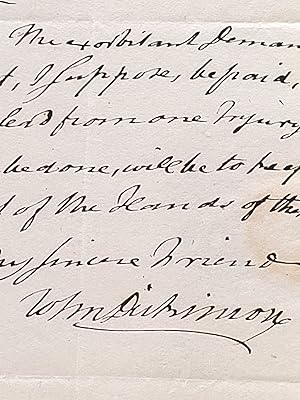 The exorbitant Deman
t, I suppose, be paid,
from one Injury
be done, will be to req
of the Hands of the
sincere Friend
John Dickinson